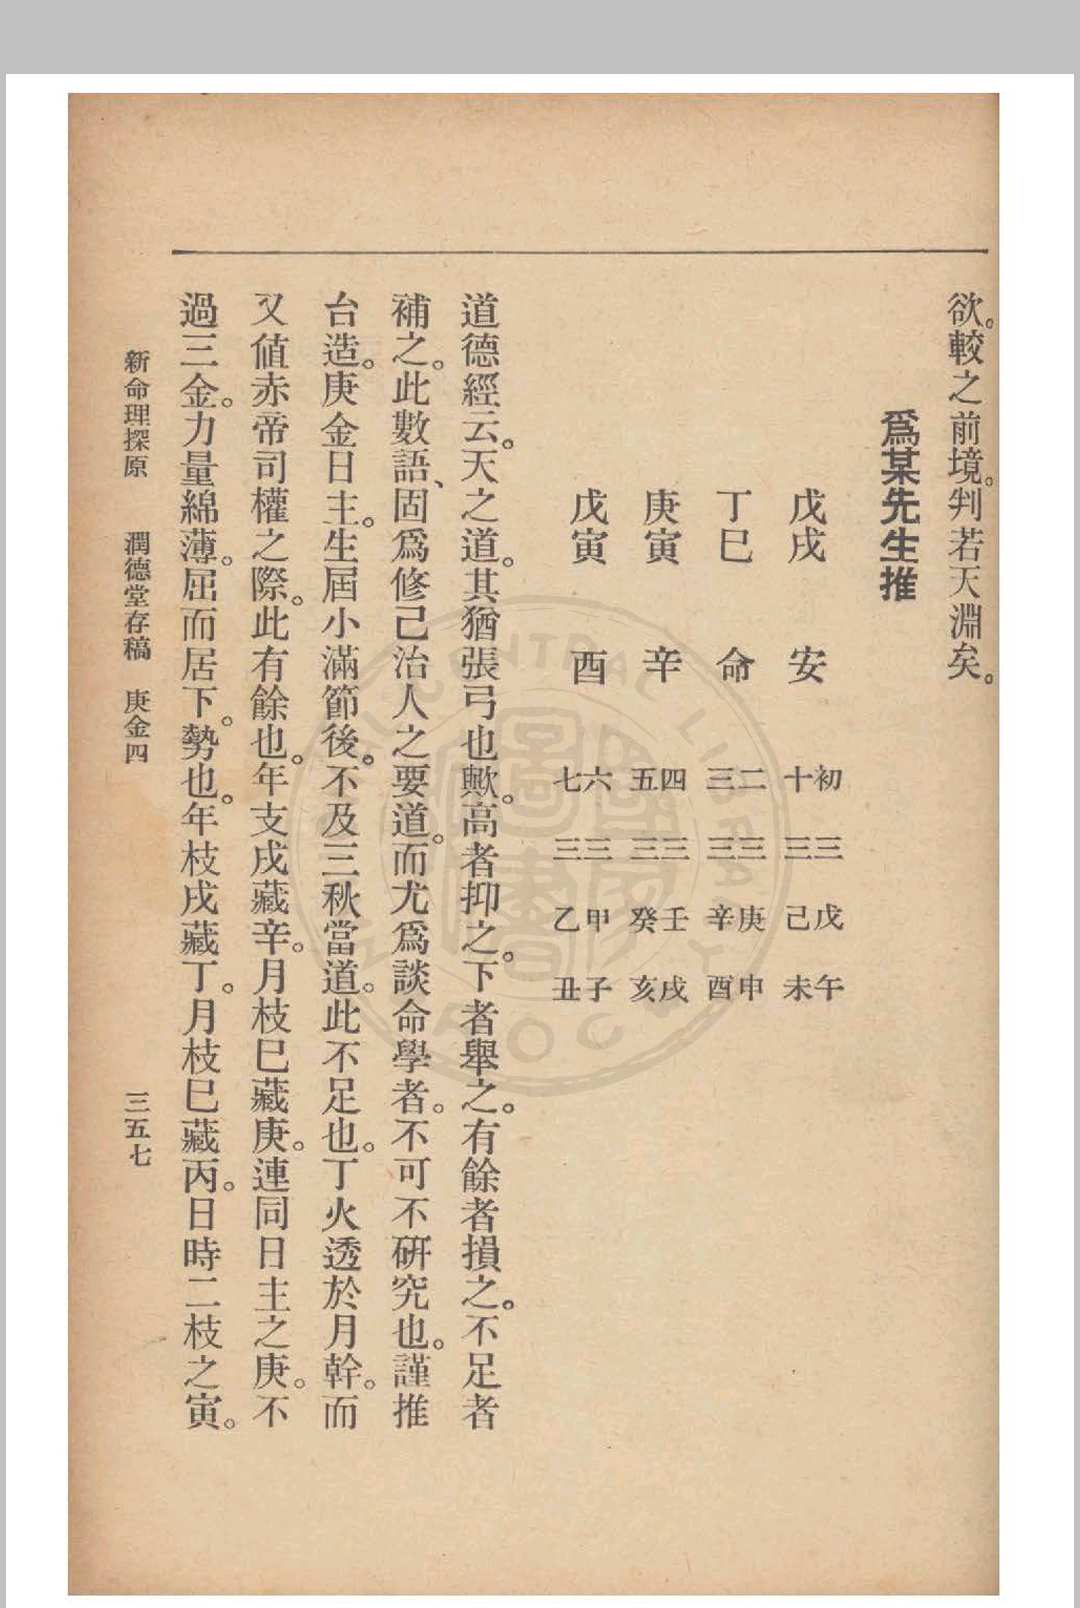 欲。較之前境。判若天淵矣。
爲某先生推
戊戌
丁巳
庚寅
戊寅
安命辛酉
初三戊午
十三己未
二三庚申
三三辛酉
四三壬戌
五三癸亥
六三甲子
七三乙丑
道德經云。天之道。其猶張弓也歟。高者抑之。下者舉之。有餘者損之。不足者
補之。此數語、固爲修己治人之要道。而尤爲談命學者。不可不研究也。謹推
台造。庚金日主。生屆小滿節後。不及三秋當道。此不足也。丁火透於月幹。而
又値赤帝司權之際。此有餘也。年支戌藏辛。月枝巳藏庚。連同日主之庚。不
過三金。力量綿薄。屈而居下。勢也。年枝戌藏丁。月枝巳藏丙。日時二枝之寅。
新命理探原 潤德堂存稿 庚金四 三五七